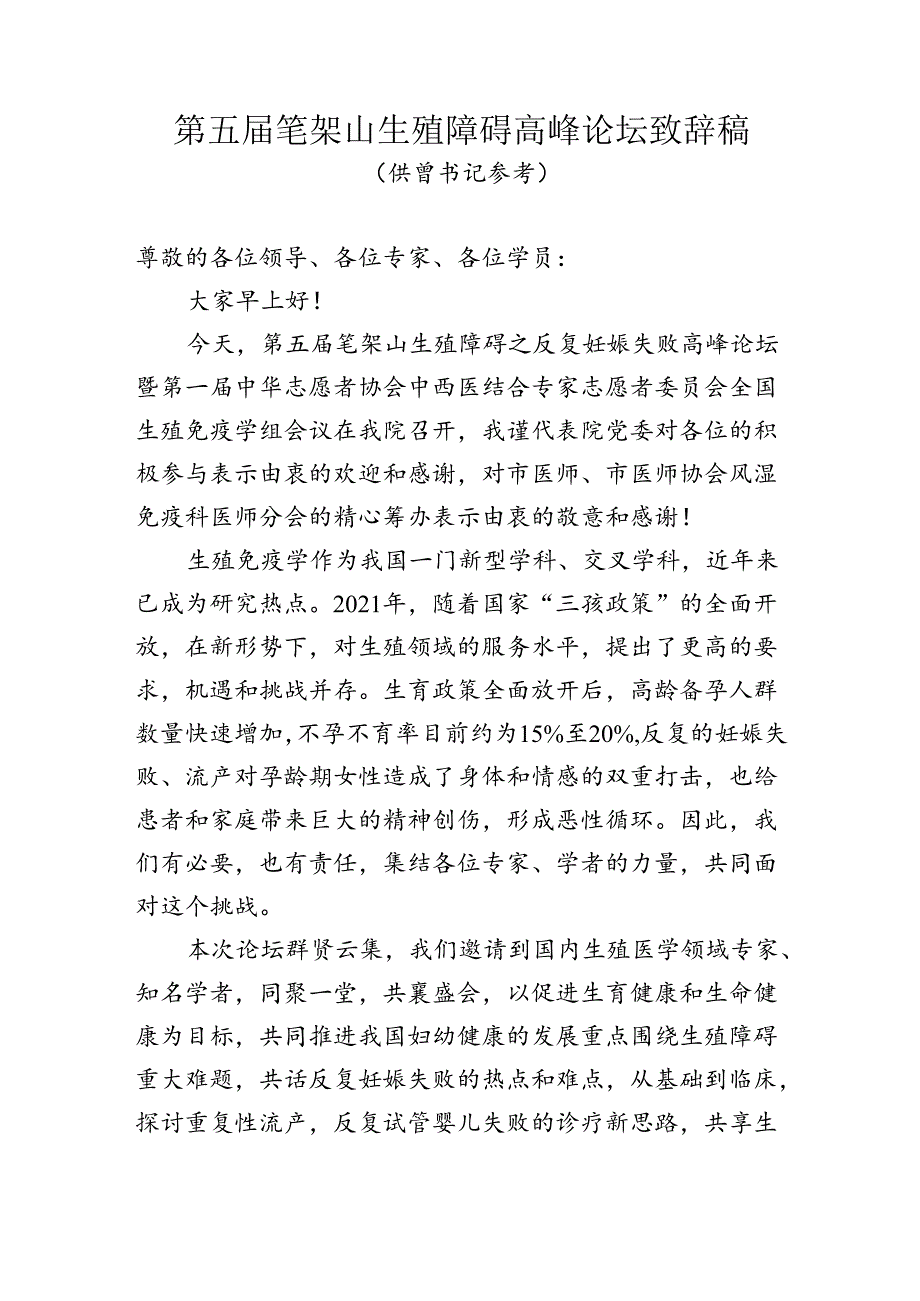 第五届笔架山生殖障碍高峰论坛致辞稿
（供曾书记参考）
尊敬的各位领导、各位专家、各位学员：
大家早上好！
今天，第五届笔架山生殖障碍之反复妊娠失败高峰论坛
暨第一届中华志愿者协会中西医结合专家志愿者委员会全国
生殖免疫学组会议在我院召开，我谨代表院党委对各位的积
极参与表示由衷的欢迎和感谢，对市医师、市医师协会风湿
免疫科医师分会的精心筹办表示由衷的敬意和感谢！
生殖免疫学作为我国一门新型学科、交叉学科，近年来
已成为研究热点。2021年，随着国家“三孩政策”的全面开
放，在新形势下，对生殖领域的服务水平，提出了更高的要
求，机遇和挑战并存。生育政策全面放开后，高龄备孕人群
数量快速增加,不孕不育率目前约为15%至20%,反复的妊娠失
败、流产对孕龄期女性造成了身体和情感的双重打击，也给
患者和家庭带来巨大的精神创伤，形成恶性循环。因此，我
们有必要，也有责任，集结各位专家、学者的力量，共同面
对这个挑战。
本次论坛群贤云集，我们邀请到国内生殖医学领域专家、
知名学者，同聚一堂，共襄盛会，以促进生育健康和生命健
康为目标，共同推进我国妇幼健康的发展重点围绕生殖障碍
重大难题，共话反复妊娠失败的热点和难点，从基础到临床，
探讨重复性流产，反复试管婴儿失败的诊疗新思路，共享生